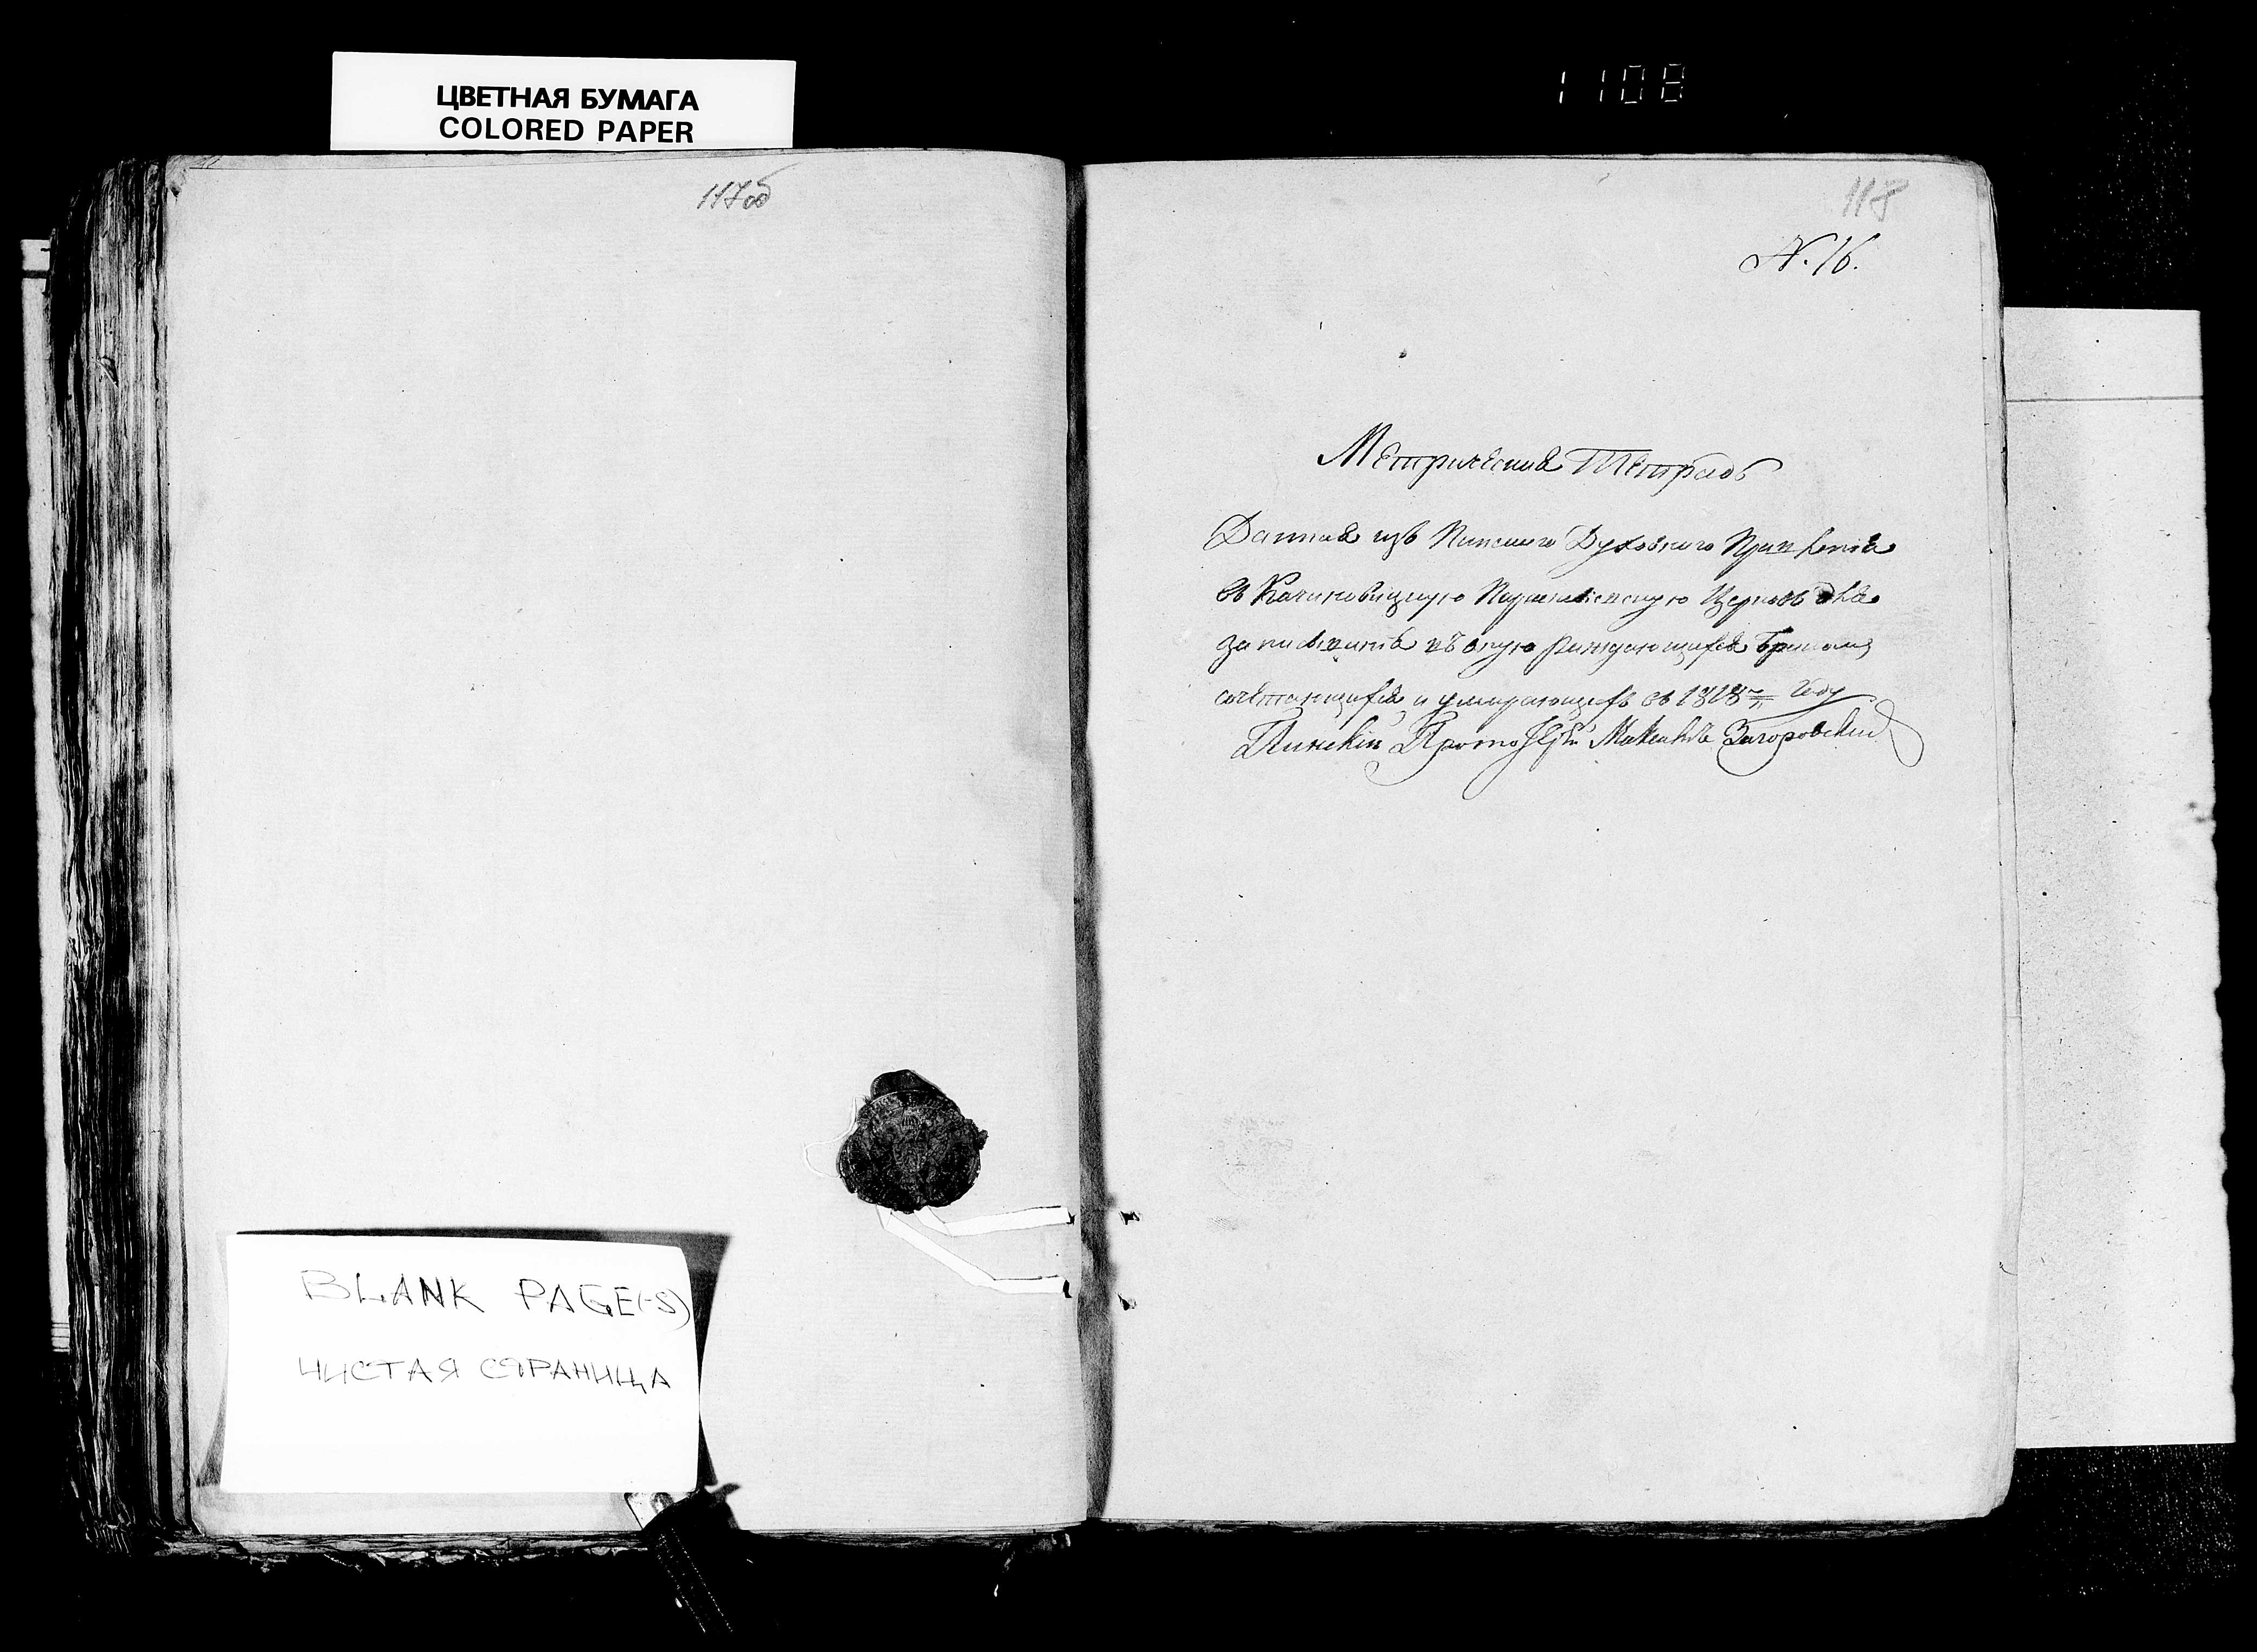 ЦВЕТНАЯ БУМАГА
COLORED PAPER
1108
117об
118
N. 16.
Метрическая Тетрадь
Данная изъ Пинскаго Духовнаго Правленія
въ Качановицкую Церковь для
записыванія въ оную раждающихся бракомъ
сочетающихся и умирающихъ въ году
Пинскій Протоіерей Загоровскій
BLANK PAGE(-S)
ЧИСТАЯ СТРАНИЦА